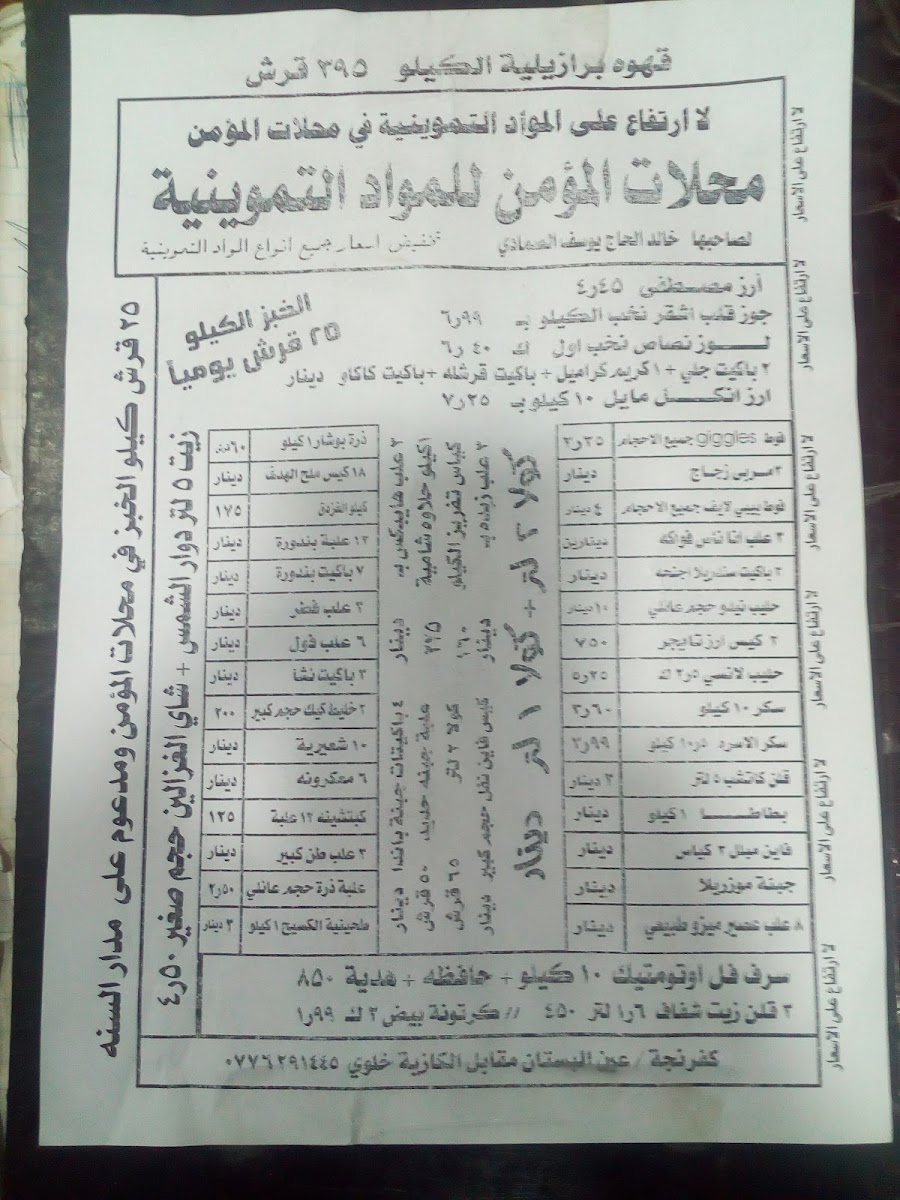 قهوه برازيلية الكيلو ٣٩٥ قرش
لا ارتفاع على المواد التموينية في محلات المؤمن
محلات المؤمن للمواد التموينية
لصاحبها خالد الحاج يوسف الصمادي تخفيض اسعار جميع انواع المواد التموينية
أرز مصطفى ٤٫٤٥
جوز قلب اشقر نخب الكيلو بـ ٦٫٩٩
لـوز نصاص نخب اول ك ٦٫٤٠
٢ باكيت جلي + ١ كريم كراميل + باكيت قرشله + باكيت كاكاو دينار
ارز انكل مايل ١٠ كيلو بـ ٧٫٢٥
الخبز الكيلو
٢٥ قرش يومياً
فوط giggles جميع الاحجام ٣٫٢٥
٢ مربى زجاج دينار
فوط بيبي لايف جميع الاحجام ٤ دينار
٣ علب انا ناس فواكه دينارين
٢ باكيت سندريلا اجنحه دينار
حليب نيدو حجم عائلي ١٠ دينار
٢ كيس ارز تايجر ٧٥٠
حليب لانسي ٢٫٥ ك ٥٫٢٥
سكر ١٠ كيلو ٣٫٦٠
سكر الاسره ١٠ كيلو ٣٫٩٩
قلن كاتشب ٥ لتر ٣ دينار
بطاطـا ١ كيلو دينار
فاين ميلل ٢ كياس دينار
جبنة موزريلا دينار
٨ علب عصير ميزو طبيعي دينار
كولا ٢ لتر + كولا ١ لتر دينار
٣ علب زبده بـ دينار كيس فاين نفل حجم كبير دينار
كياس تفريز الكيلو ١٦٠ كولا ٢ لتر ٦٥ قرش
١ كيلو حلاوه شامية ٢٢٥ علبة جبنه حديد ٥٠ قرش
٢ علب هايبكس بـ دينار ٤ باكيتات جبنة باندا دينار
ذرة بوشار ١ كيلو ٦٠ قرش
١٨ كيس ملح الهدف دينار
كيلو القزدق ١٧٥
١٢ علبة بندورة دينار
٧ باكيت بندورة دينار
٣ علب فطر دينار
٦ علب فول دينار
٣ باكيت نشا دينار
٢ خليط كيك حجم كبير ٢٠٠
١٠ شعيرية دينار
٦ معكرونه دينار
كبتشينه ١٢ علبة ١٢٥
٣ علب طن كبير دينار
علبة ذرة حجم عائلي ٢٫٥٠
طحينية الكسيح ١ كيلو ٣ دينار
زيت ٥ لتر دوار الشمس + شاي الغزالين حجم صغير ٤٫٥٠
٢٥ قرش كيلو الخبز في محلات المؤمن ومدعوم على مدار السنه
سرف فل اوتومتيك ١٠ كيلو + حافظه + هدية ٨٥٠
٣ قلن زيت شفاف ١٫٦ لتر ٤٥٠ // كرتونة بيض ٢ ك ١٫٩٩
كفرنجة / عين البستان مقابل الكازية خلوي ٠٧٧٦٢٩١٤٤٥
لا ارتفاع على الاسعار
لا ارتفاع على الاسعار
لا ارتفاع على الاسعار
لا ارتفاع على الاسعار
لا ارتفاع على الاسعار
لا ارتفاع على الاسعار